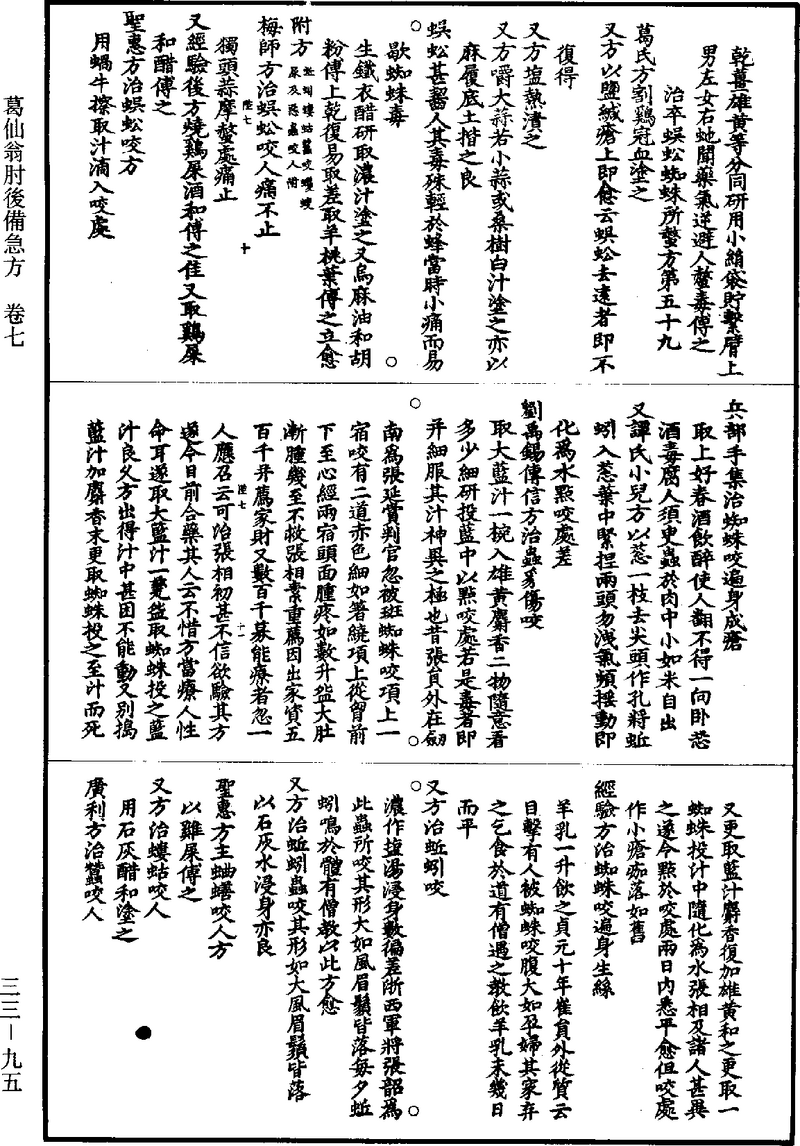 乾薑雄黃等分同研用小絹袋貯繫臂上
男左女右虵聞藥氣逆避人螫毒傅之
治卒蜈蚣蜘蛛所螫方第五十九
葛氏方割鷄冠血塗之
又方以鹽緘瘡上即愈云蜈蚣去遠者即不
復得
又方塩熱漬之
又方嚼大蒜若小蒜或桑樹白汁塗之亦以
麻履底土揩之良
蜈蚣甚齧人其毒殊輕於蜂當時小痛而易
歇蜘蛛毒
生鐵衣醋研取濃汁塗之又烏麻油和胡
粉傅上乾復易取差取羊桃葉傅之立愈
附方 蚯蚓螻蛄蠶咬蠼螋
尿及惡蟲咬人附
梅師方治蜈蚣咬人痛不止
獨頭蒜摩螫處痛止
又經驗後方燒鷄屎酒和傅之佳又取鷄屎
和醋傅之
聖惠方治蜈蚣咬方
用蝸牛擦取汁滴入咬處
陸七
十
兵部手集治蜘蛛咬遍身成瘡
取上好春酒飲醉使人翻不得一向卧恐
酒毒腐人須臾蟲於肉中小如米自出
又譚氏小兒方以葱一枝去尖頭作孔將蚯
蚓入葱葉中緊捏兩頭勿洩氣頻搖動即
化爲水點咬處差
劉禹錫傳信方治蟲豸傷咬
取大藍汁一椀入雄黃麝香二物隨意看
多少細研投藍中以點咬處若是毒者即
并細服其汁神異之極也昔張負外在劒
南爲張延賞判官忽被斑蜘蛛咬項上一
宿咬有二道赤色細如箸繞項上從胷前
下至心經兩宿頭面腫疼如數升盌大肚
漸腫幾至不救張相素重薦因出家資五
百千并薦家財又數百千募能療者忽一
人應召云可治張相初甚不信欲驗其方
遂令目前合藥其人云不惜方當療人性
命耳遂取大藍汁一甆盌取蜘蛛投之藍
汁良久方出得汁中甚困不能動又別搗
藍汁加麝香末更取蜘蛛投之至汁而死
陸七
十一
又更取藍汁麝香復加雄黃和之更取一
蜘蛛投汁中隨化爲水張相及諸人甚異
之遂令點於咬處兩日內悉平愈但咬處
作小瘡痂落如舊
經驗方治蜘蛛咬遍身生絲
羊乳一升飲之貞元十年崔員外從質云
目擊有人被蜘蛛咬腹大如孕婦其家弃
之乞食於道有僧遇之教飲羊乳未幾日
而平
又方治蚯蚓咬
濃作塩湯浸身數徧差浙西軍將張韶爲
此蟲所咬其形大如風眉鬚皆落每夕蚯
蚓鳴於體有僧教以此方愈
又方治蚯蚓蟲咬其形如大風眉鬚皆落
以石灰水浸身亦良
聖惠方主蛐蟮咬人方
以雞屎傅之
又方治螻蛄咬人
用石灰醋和塗之
廣利方治蠶咬人
葛仙翁肘後備急方 卷七
三三－九五